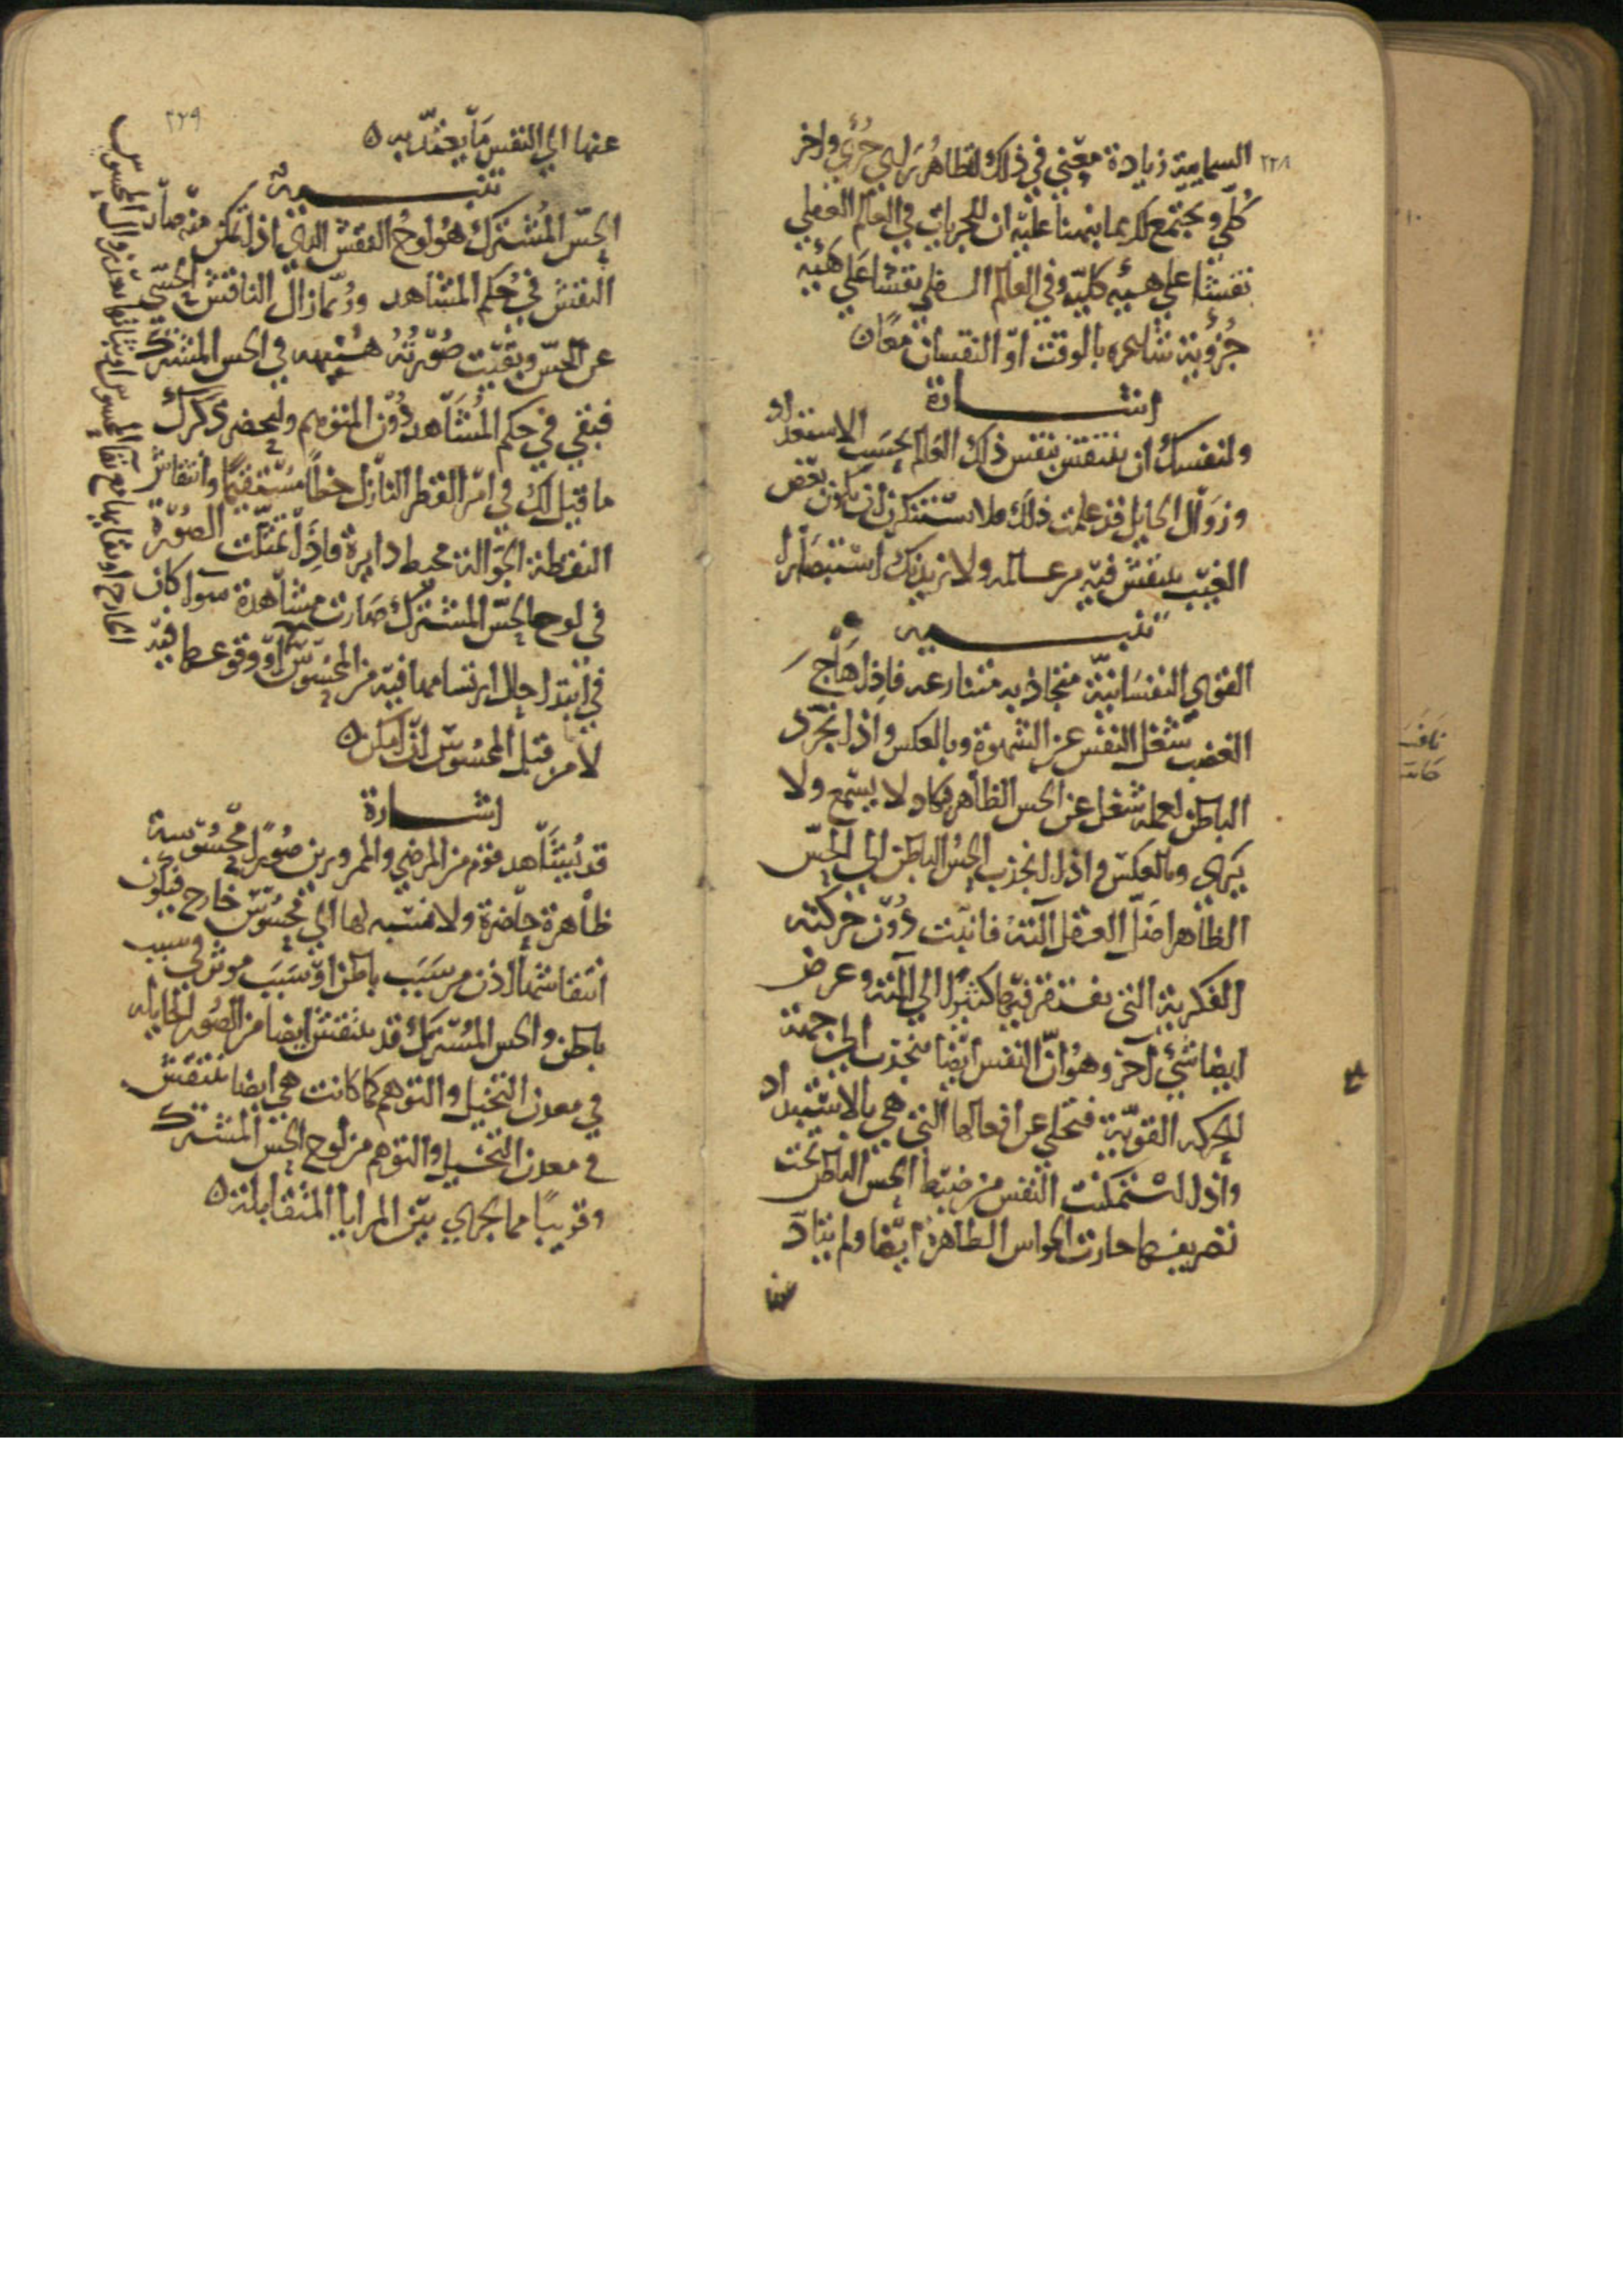 ٢٢٨
السمايية زيادة معني في ذلك لتظاهر راي جزءي واخر
كلي ويجتمع لك مما نبهنا عليه ان للجزيات في العالم العقلي
نقشا علي هييه كليه وفي العالم النفسي نقشا علي هيئه
جزويه شاعره بالوقت او النقشان معا
اشارة
ولنفسك ان تنتقش بنقش ذلك العالم بحسب الاستعداد
وزوال الحايل قد علمت ذلك فلا تستنكرن ان يكون بعض
الغيب ينتقش فيه من عالمه ولازيدنك استبصارا
تنبيه
القوي النفسانية متجاذبه متنازعه فاذا هاج
الغضب شغل النفس عن الشهوة وبالعكس واذا تجرد
الباطن لعمله شغل عن الحس الظاهر فكاد لا يسمع ولا
يري وبالعكس واذا انجذب الحس الباطن الي الحس
الظاهر امال العقل آلته فانبت دون حركته
الفكرية التي يفتقر فيها كثيرا الي آلته وعرض
ايضا شيء آخر وهو ان النفس ايضا تنجذب الي جهة
الحركه القوية فتخلي عن افعالها التي هي بالاستبداد
واذا استمكنت النفس من ضبط الحس الباطن تحت
تصريفها حارت الحواس الظاهرة ايضا ولم يتاد
٢٢٩
عنها الي النفس ما يعتد به
تنبيه
الحس المشترك هو لوح النقش الذي اذا تمكن منه صار
النقش في حكم المشاهد وربما زال الناقش الحسي
عن الحس وبقيت صورته هنيهه في الحس المشترك
فبقي في حكم المشاهد دون المتوهم وليحضر ذكرك
ما قيل لك في امر القطر النازل خطا مستقيما وانتقاش
النقطة الجوالة محيط دايرة فاذا تمثلت الصورة
في لوح الحس المشترك صارت مشاهدة سوا كان
في ابتدا حال ارتسامها فيه من المحسوس الخارج او بقايها مع بقآ المحسوس او ثباتها بعد زوال المحسوس او وقوعها فيه
لا من قبل المحسوس ان امكن
اشارة
قد يشاهد قوم من المرضي والممرورين صورا محسوسة
ظاهرة حاضرة ولا نسبه لها الي محسوس خارج فيكون
انتقاشها اذن من سبب باطن او سبب موثر في سبب
باطن والحس المشترك قد ينتقش ايضا من الصور الجايله
في معدن التخيل والتوهم كما كانت هي ايضا تنتقش
في معدن التخيل والتوهم من لوح الحس المشترك
وقريبا مما يجري بين المرايا المتقابلة